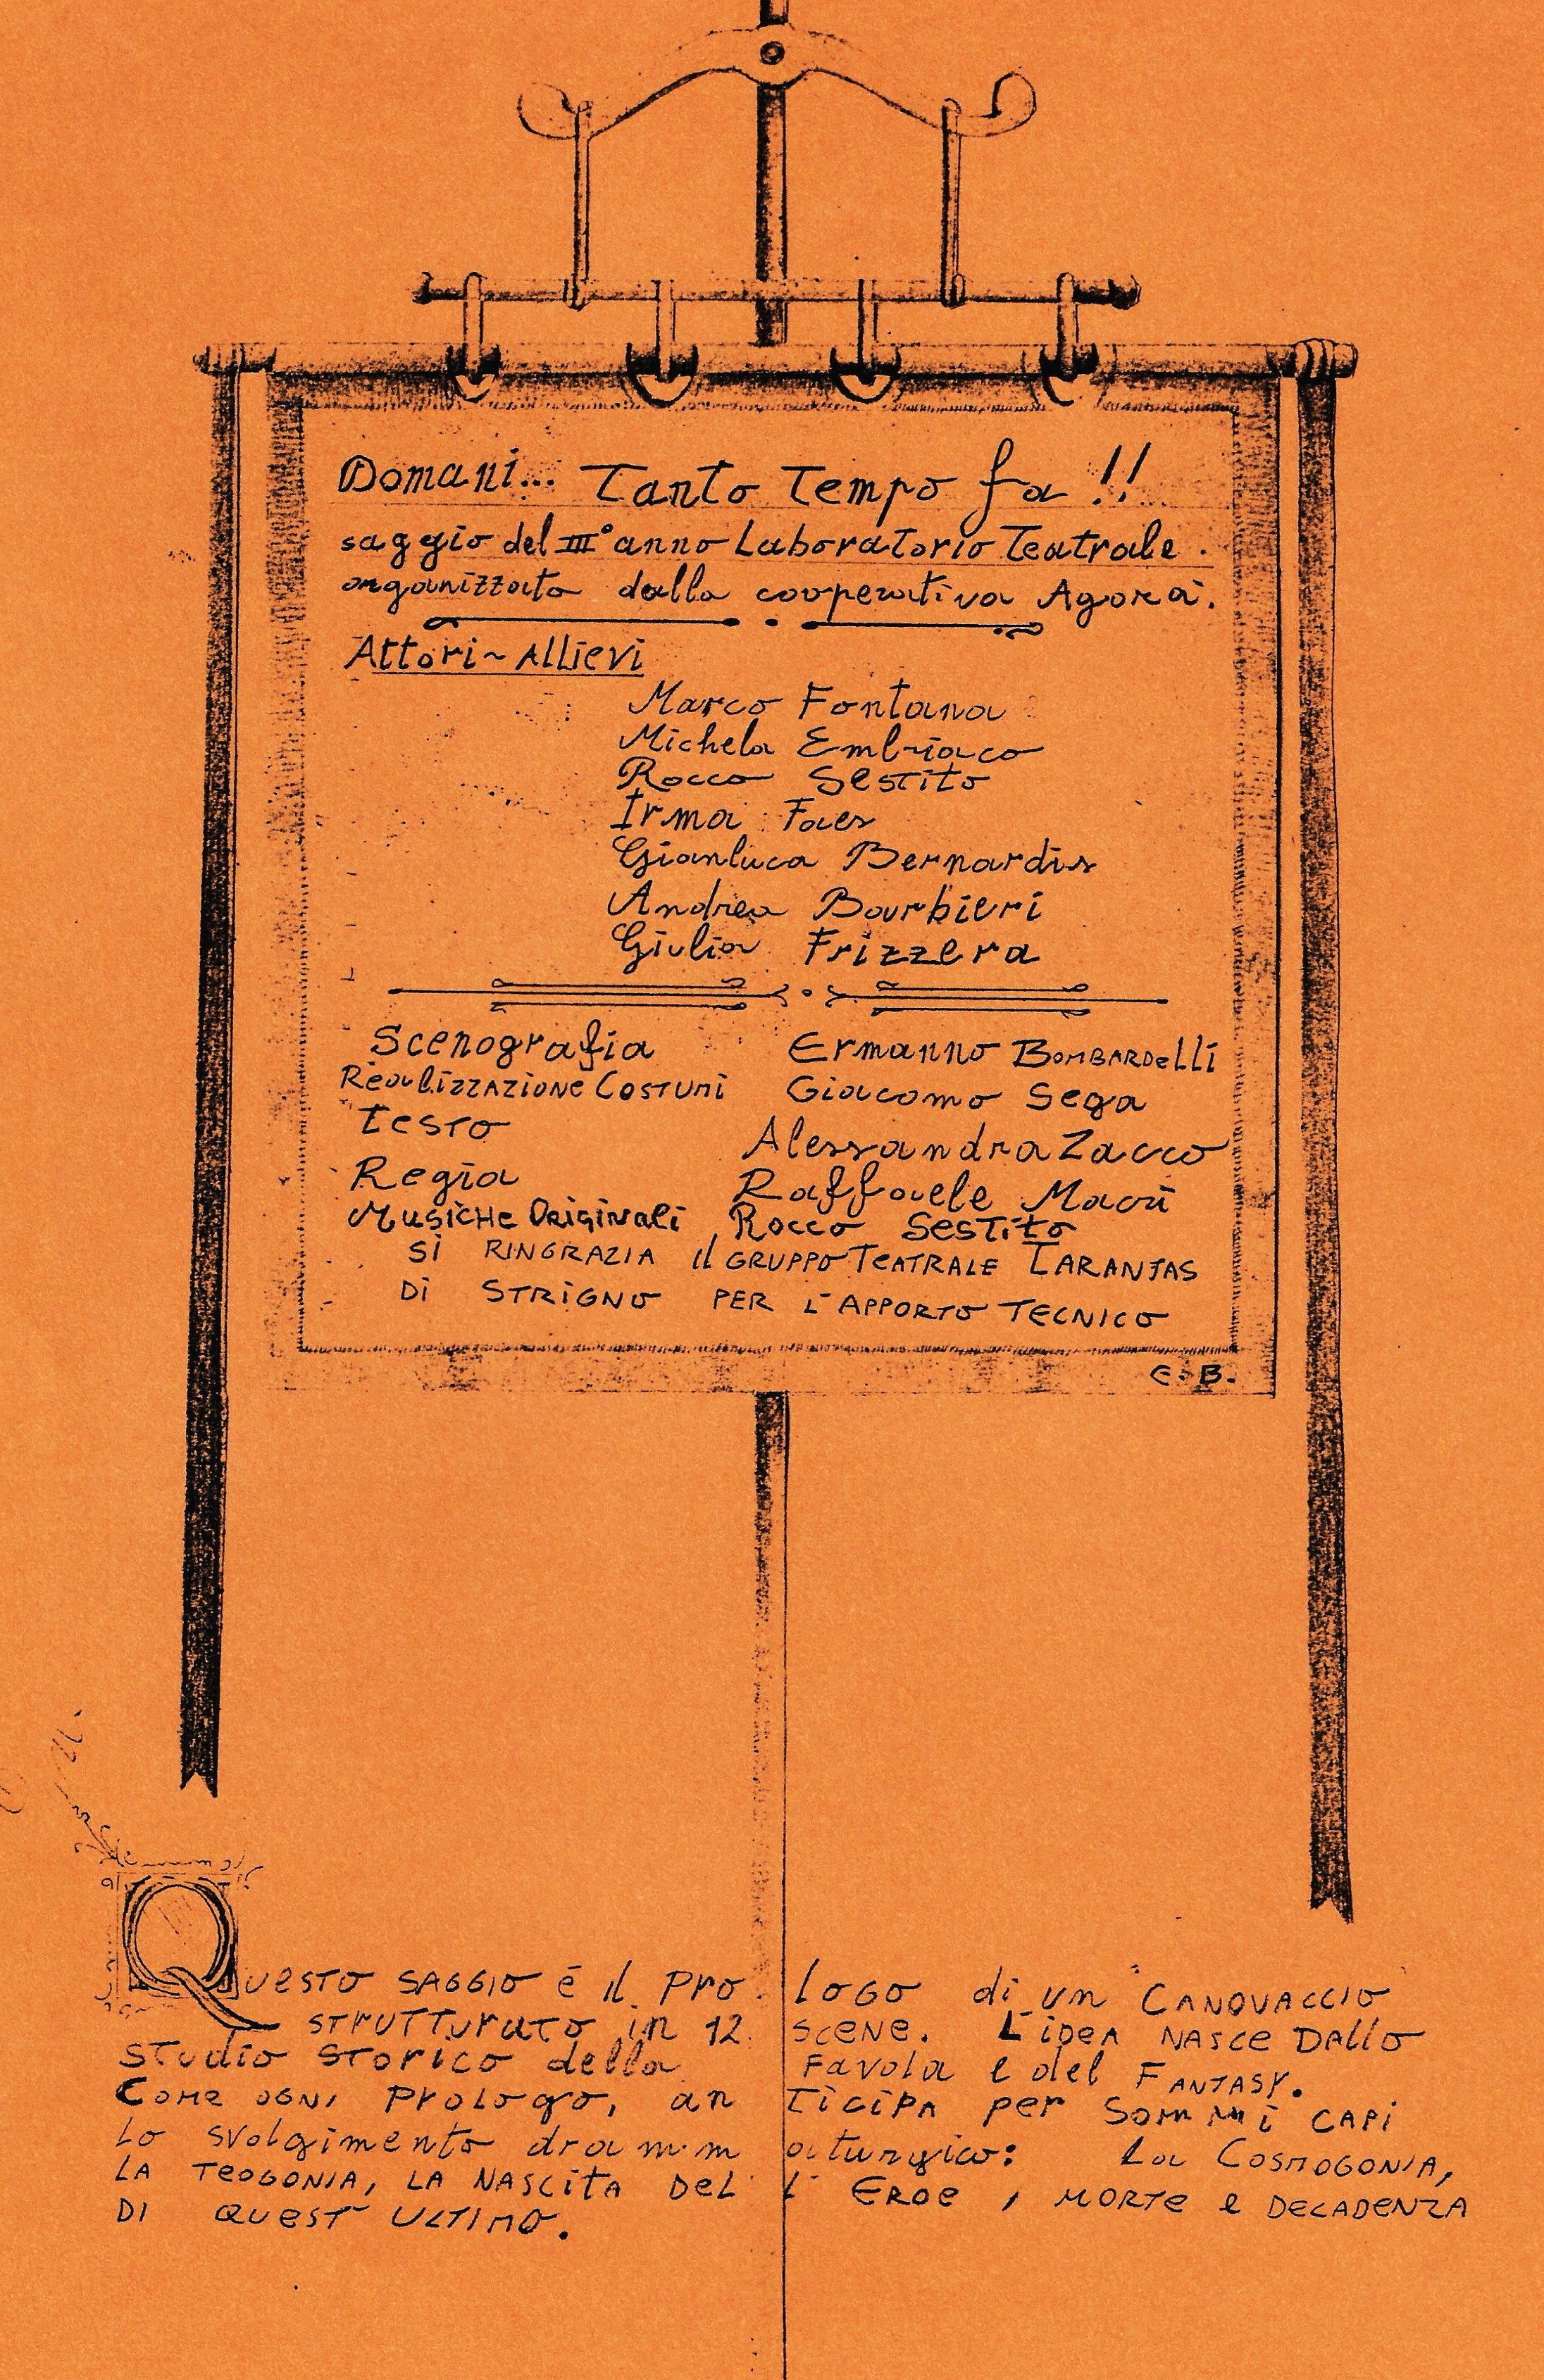 Domani... Tanto Tempo fa !!
saggio del III° anno Laboratorio Teatrale.
organizzato dalla cooperativa Agorà.
Attori~Allievi
Marco Fontana
Michela Embriaco
Rocco Sestito
Irma Faes
Gianluca Bernardis
Andrea Barbieri
Giulia Frizzera
Scenografia Ermanno BOMBARDelli
ReaLizzazione Costumi Giacomo Sega
testo Alessandra Zacco
Regia Raffaele Macrì
Musiche Originali Rocco Sestito
Si RINGRAZIA il GRUPPO TeATRALE TARANTAS
Di STRIGNO PER L'APPORTO TECNICO
E. B.
QUESTO SAGGIO è il Prologo di un "CANOVACCIO"
STRUTTURATO in 12 SCENE. L'iDEA NASCE DALLO
STUDIO STORICO della FAVOLA e del FANTASY.
COME OGNI PROLOGO, anTICIPA per SOMMI CAPI
Lo svolgimento drammaturgico: La COSMOGONIA,
LA TEOGONIA, LA NASCITA DELL'EROE, MORTE e DECADENZA
DI QUEST'ULTIMO.